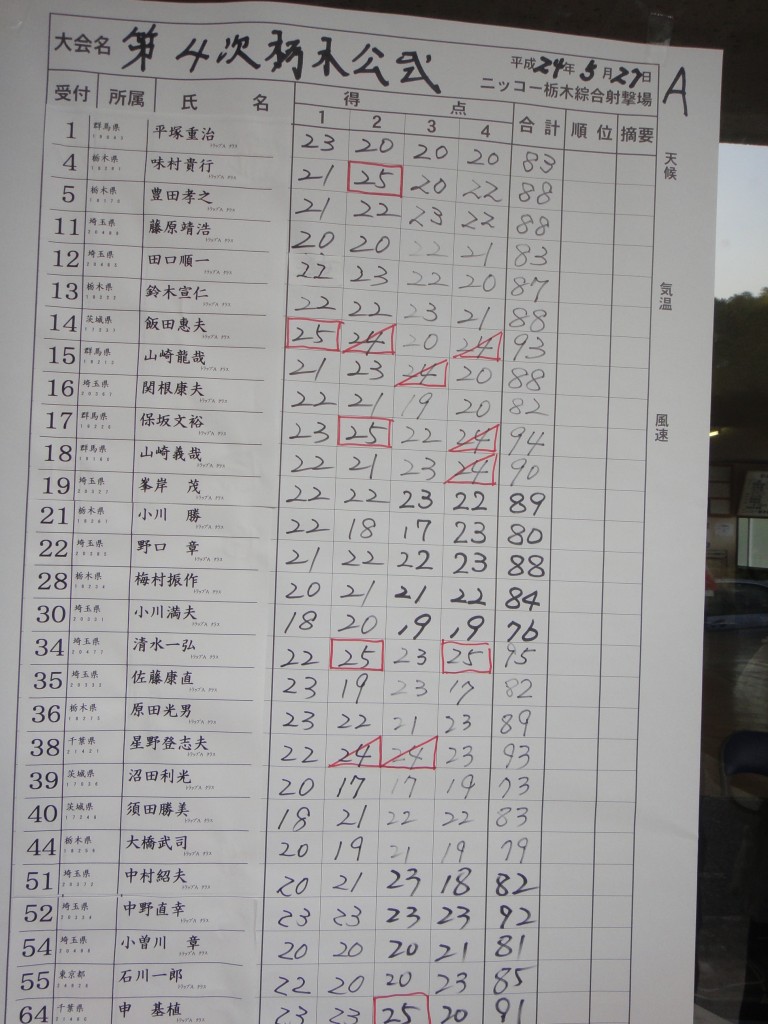 大会名 第4次栃木公式 平成24年5月27日
ニッコー栃木綜合射撃場 A
受付 所属 氏名 得点 合計 順位 摘要
1 2 3 4
天候
気温
風速
1 群馬県 平塚重治 23 20 20 20 83
4 栃木県 味村貴行 21 25 20 22 88
5 栃木県 豊田孝之 21 22 23 22 88
11 埼玉県 藤原靖浩 20 20 22 21 83
12 埼玉県 田口順一 22 23 22 20 87
13 栃木県 鈴木宣仁 22 22 23 21 88
14 茨城県 飯田惠夫 25 24 20 24 93
15 群馬県 山崎龍哉 21 23 24 20 88
16 埼玉県 関根康夫 22 21 19 20 82
17 群馬県 保坂文裕 23 25 22 24 94
18 群馬県 山崎義哉 22 21 23 24 90
19 埼玉県 峯岸 茂 22 22 23 22 89
21 栃木県 小川 勝 22 18 17 23 80
22 埼玉県 野口 章 21 22 22 23 88
28 栃木県 梅村振作 20 21 21 22 84
30 埼玉県 小川満夫 18 20 19 19 76
34 埼玉県 清水一弘 22 25 23 25 95
35 埼玉県 佐藤康直 23 19 23 17 82
36 栃木県 原田光男 23 22 21 23 89
38 千葉県 星野登志夫 22 24 24 23 93
39 茨城県 沼田利光 20 17 17 19 73
40 茨城県 須田勝美 18 21 22 22 83
44 栃木県 大橋武司 20 19 21 19 79
51 埼玉県 中村紹夫 20 21 23 18 82
52 埼玉県 中野直幸 23 23 23 23 92
54 埼玉県 小曽川 章 20 20 20 21 81
55 東京都 石川一郎 22 20 20 23 85
64 千葉県 申 基植 23 23 25 20 91